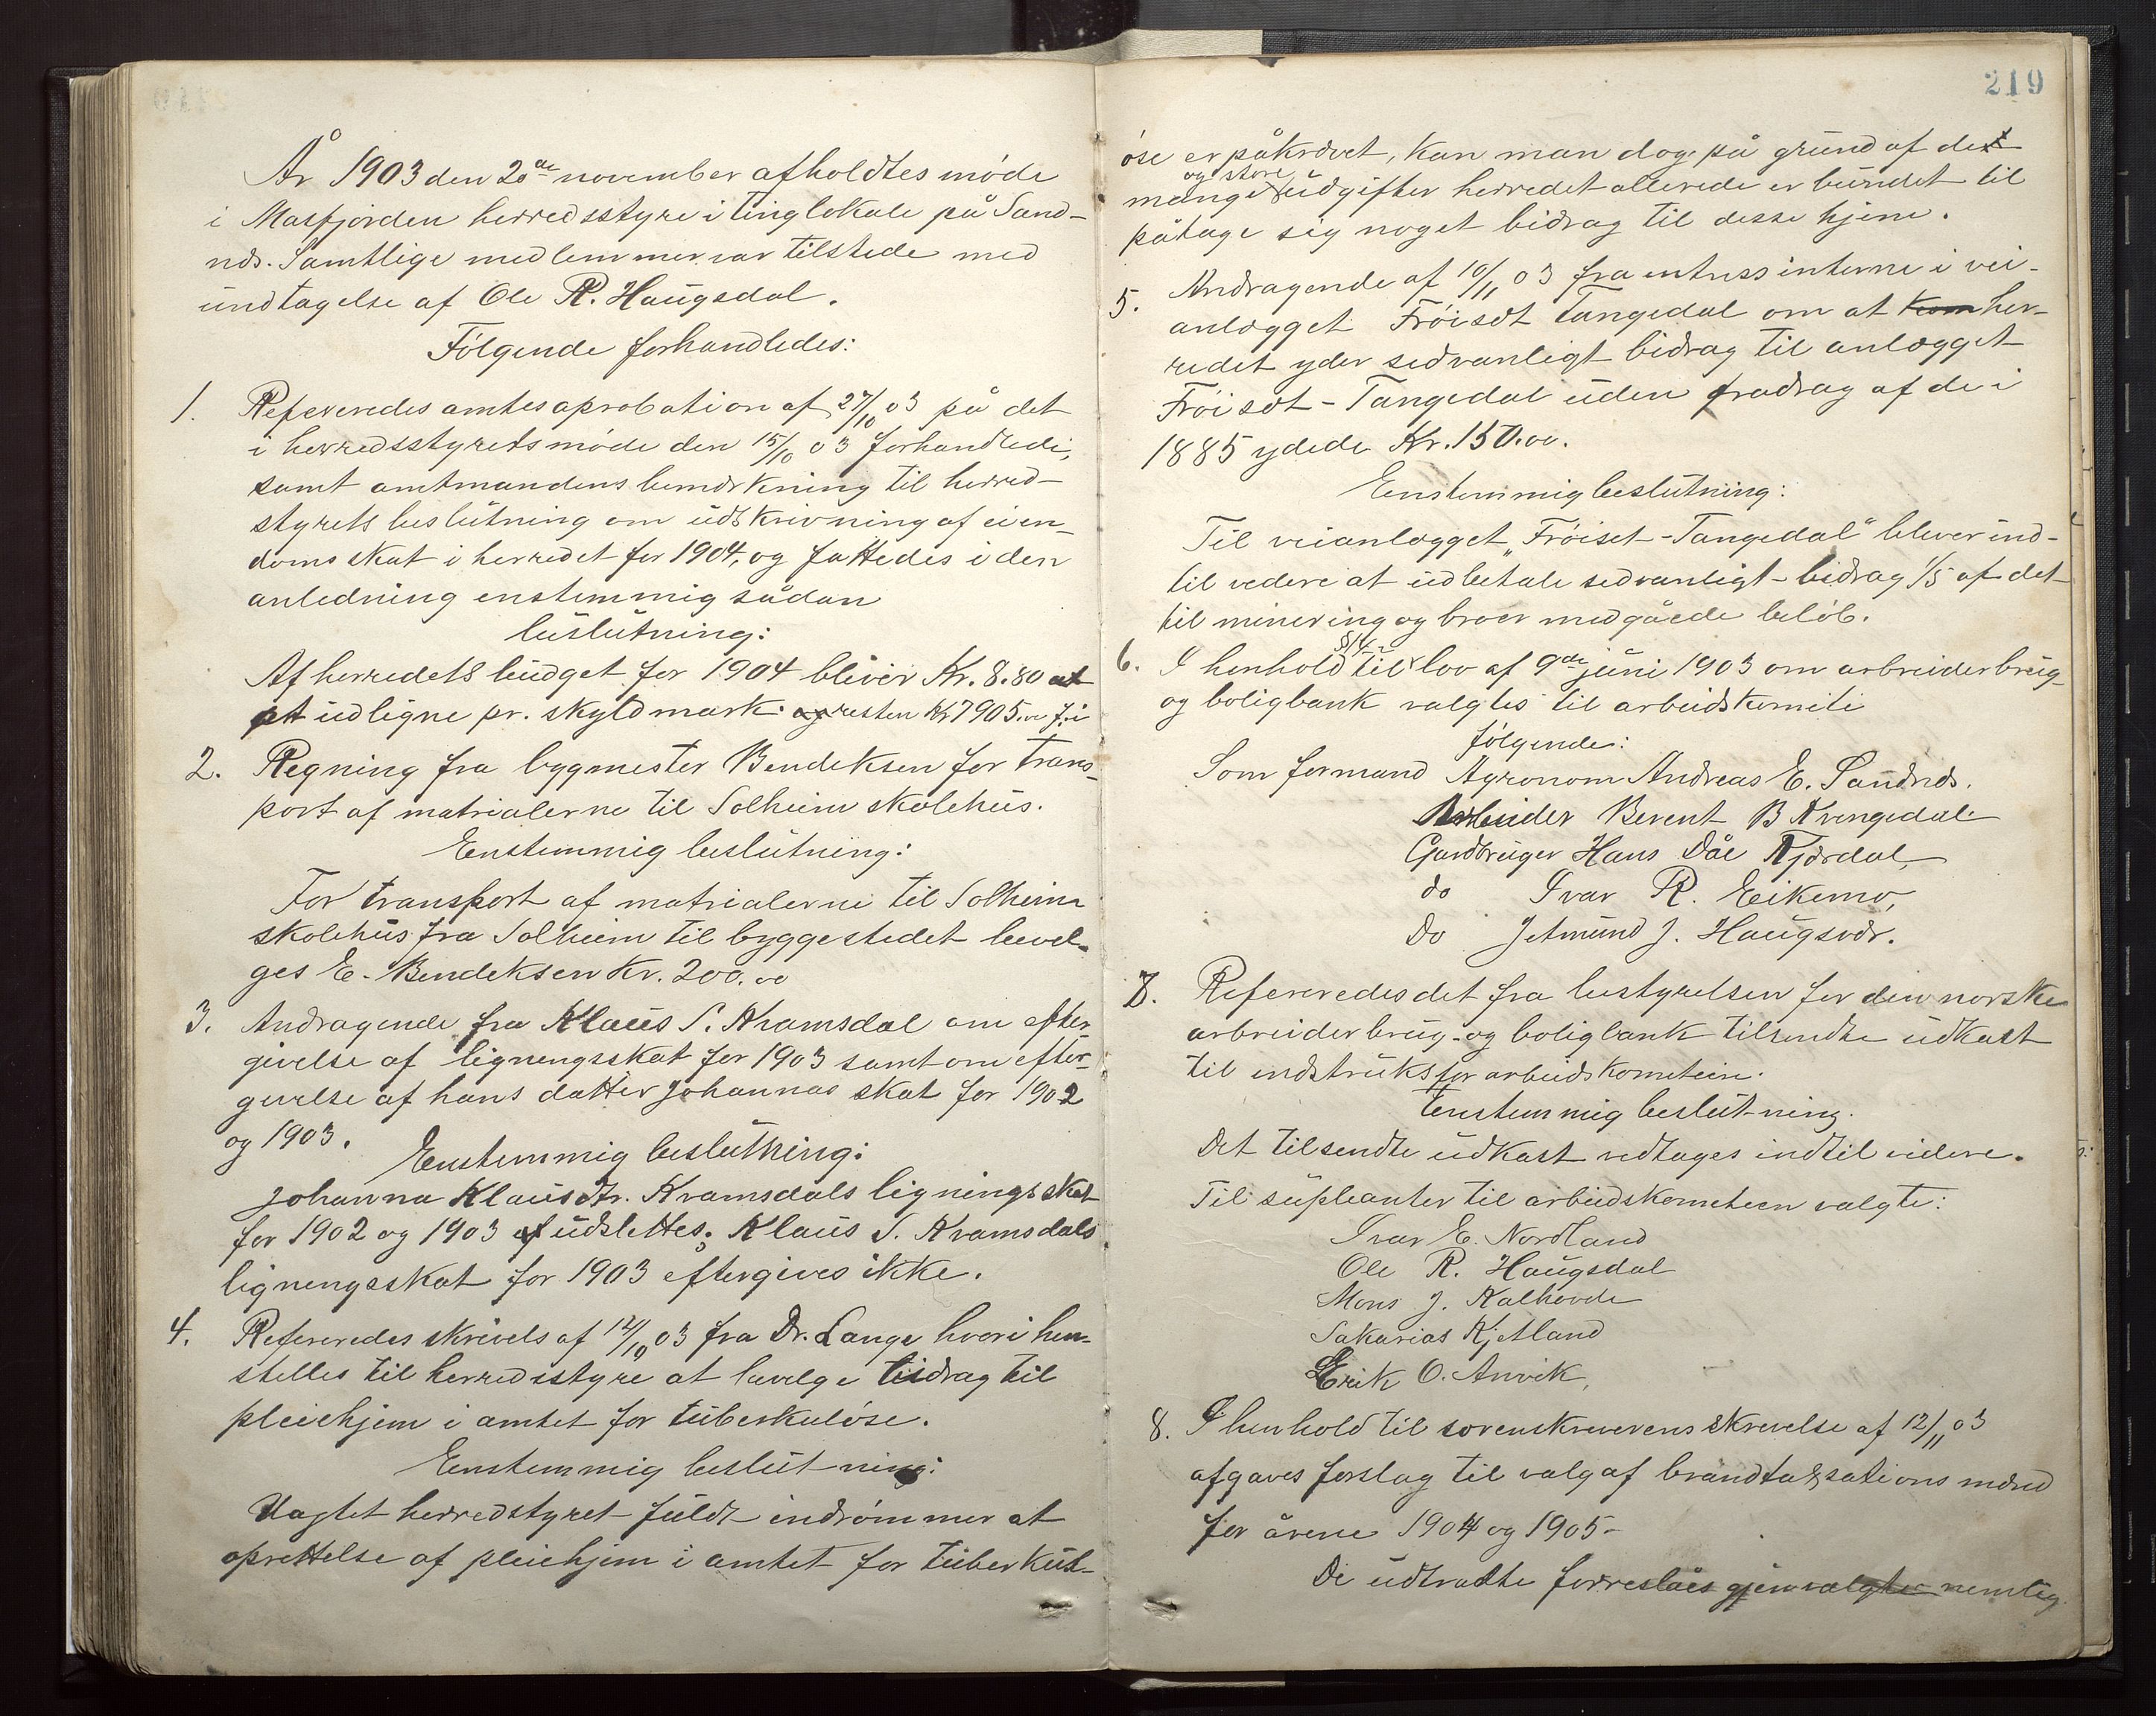 År 1903 den 20de november afholdtes møde
i Masfjorden herredsstyre i tinglokale på Sand-
næs. Samtlige medlemmer var tilstede med
undtagelse af Ole R. Haugsdal.
Følgende forhandledes:
1. Refereredes amtesaprobation af 27/10 03 på det
i herredsstyrets møde den 15/10 03 forhandlede,
samt amtmandens bemærkning til herred-
styrets beslutning om udskrivning af eien-
domsskat i herredet for 1904, og fattedes i den
anledning enstemmig sådan
beslutning:
Af herredets budget for 1904 bliver Kr. 8.80
at udligne pr. skyldmark. og resten Kr 7905.00
2. Regning fra bygmester Bendeksen for trans-
port af matrialerne til Solheim skolehus.
Eenstemmig beslutning:
For transport af matrialerne til Solheim
skolehus fra Solheim til byggestedet bevel-
ges E. Bendeksen Kr. 200.00
3. Andragende fra Klaus S. Kramsdal om efter-
givelse af ligningsskat for 1903 samt om efter-
givelse af hans datter Johannas skat for 1902
og 1903.
Eenstemmig beslutning:
Johanna Klausdtr. Kramsdals ligningsskat
for 1902 og 1903 af udslettes; Klaus S. Kramsdals
ligningsskat for 1903 eftergives ikke.
4. Refereredes skrivels af 12/10 03 fra Dr. Lange hvori hen-
stilles til herredsstyre at bevelge bidrag til
pleiehjem i amtet for tuberkuløse.
Eenstemmig beslutning:
Uagtet herredstyret fuldt indrømmer at
oprettelse af pleiehjem i amtet for tuberkul-
219
øse er påkrævet, kan man dog på grund af det
og store
mange udgifter herredet allerede er bundet til
påtage sig noget bidrag til desse hjem.
5. Andragende af 10/11 03 fra intressinterne i vei-
anlægget Frøiset Tangedal om at kom her-
redet yder sedvanligt bidrag til anlægget
Frøiset - Tangedal uden fradrag af de i
1885 ydede Kr. 150.00.
Eenstemmig beslutning:
Til veianlægget „Frøiset - Tangedal" bliver ind-
til vedere at udbetale sedvanligt bidrag 1/5 af det
til minering og broer medgåede beløb.
§14
6. I henhold til lov af 9de juni 1903 om arbeiderbrug-
og boligbank valgtes til arbeidskomite
følgende:
Som formand Agronom Andreas E. Sandnæs.
Arbeider Berent B Kvingedal
Gardbruger Hans Dåe Kjærdal,
do Ivar R. Eikemo,
Do Jetmund J. Haugsvær.
7. Refereredes det fra bestyrelsen for den norske
arbreiderbrug- og boligbank tilsendte udkast
til indstruks for arbeidskometeen.
Eenstemmig beslutning.
Det tilsendte udkast vedtages indtil videre.
Til supleanter til arbeidskometeen valgte:
Ivar E. Nordland
Ole R. Haugsdal
Mons J. Kalhovde
Sakarias Kjetland
Erik O. Anvik,
8. I henhold til sorenskreverens skrevelse af 12/11 03
afgaves forslag til valg af brandtaksationsmænd
for årene 1904 og 1905-
De udtrædte forreslåes gjenvalgte nemlig